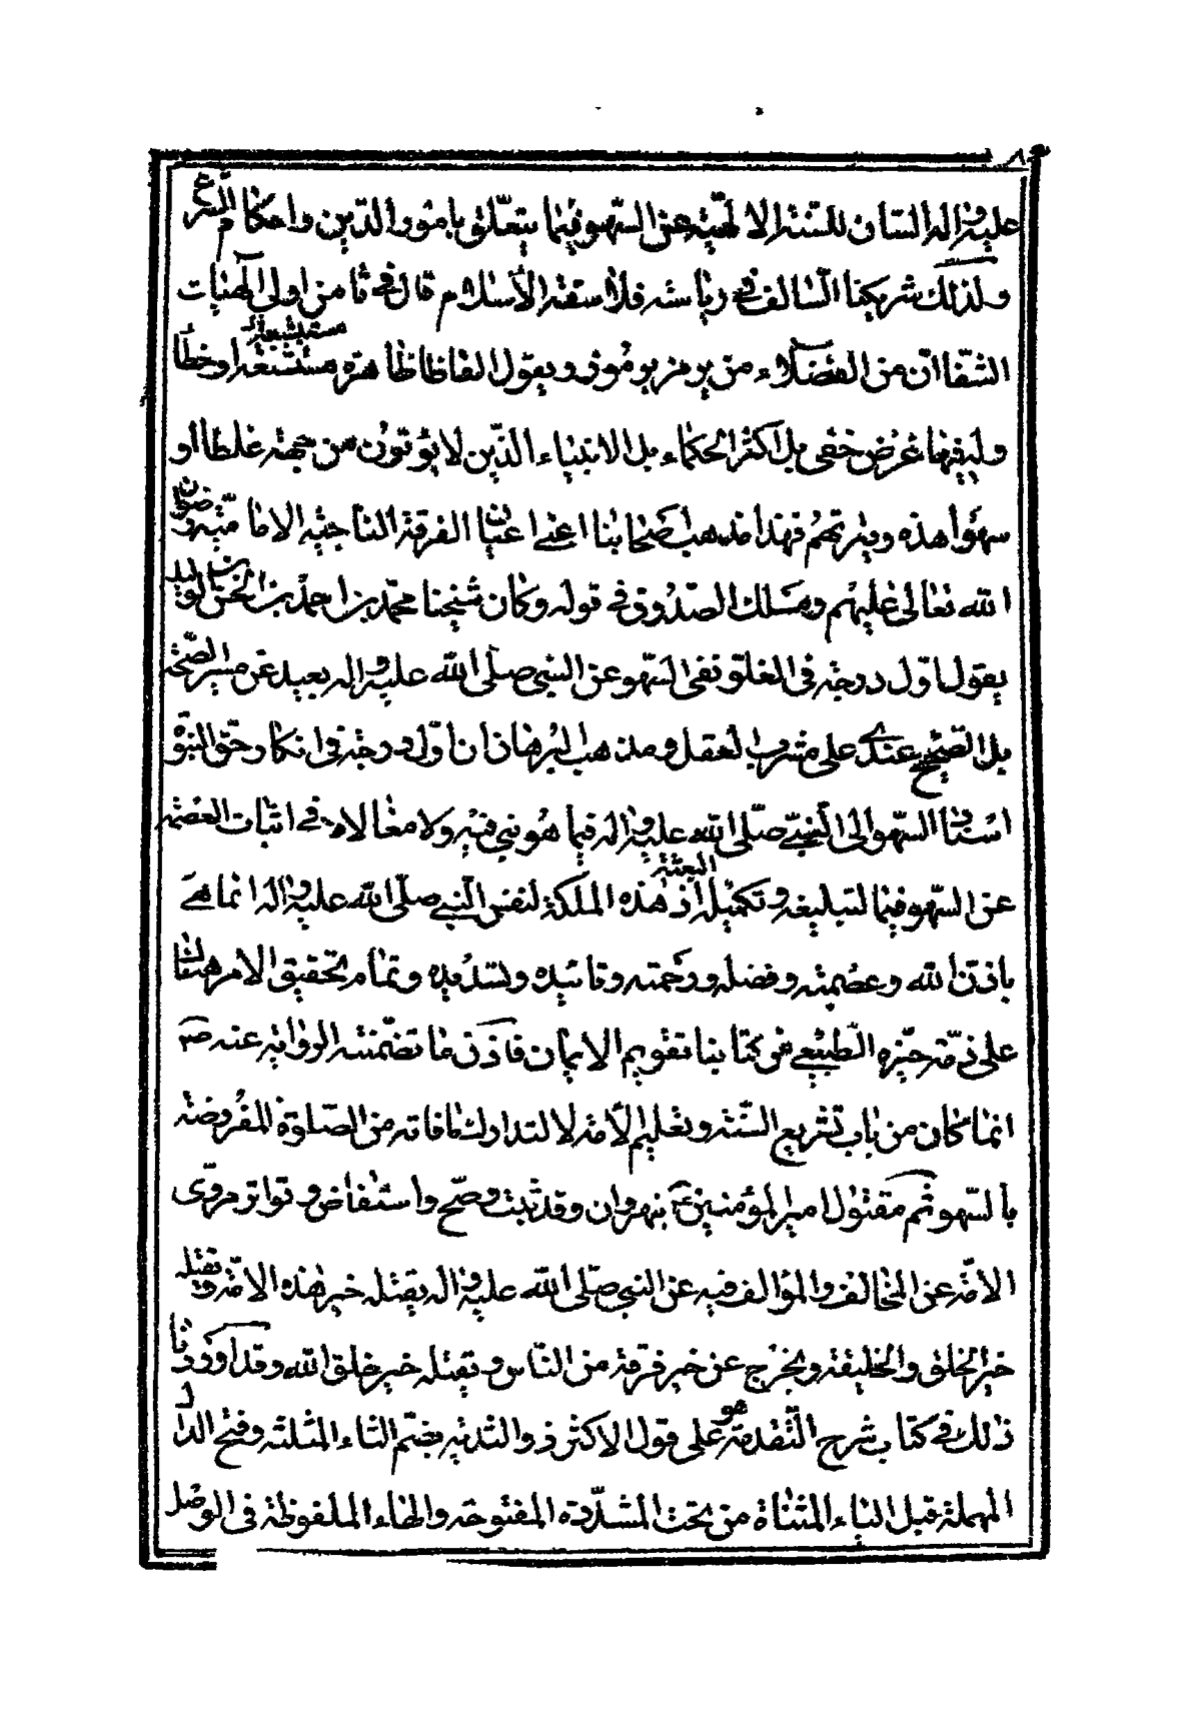 عليه واله السان للسنة الالهية عن السهو فيما يتعلق بامور الدين واحكام الشرع
ولذلك شريكنا السالف في رياسته فلاسفة الاسلام قال في ثامن اولى الهيات
الشفا ان من الفضلاء من يرمز برموز ويقول الفاظا ظاهرة مستشنعة او خطا
وله فيها غرض خفى بل اكثر الحكماء بل الانبياء الذين لا يؤتون من جهة غلطا او
سهوا هذه وتيرتهم فهذا مذهب اصحابنا اعنى اعيان الفرقة الناجية الامامية رضوان
الله تعالى عليهم ومسلك الصدوق في قوله وكان شيخنا محمد بن احمد بن الحسن بن الوليد
يقول اول درجة فى الغلو نفى السهو عن النبي صلى الله عليه واله بعيد عن مسير الصحة
بل الصحيح عندى على مشرب العقل ومذهب البرهان ان اول درجة فى انكار حق النبوة
اسناد السهو الى النبى صلى الله عليه واله فيما هو نبى فيه ولا مغالاة في اثبات العصمة
عن السهو فيما لتبليغه وتكميله البعثة اذ هذه الملكة لنفس النبي صلى الله عليه واله انما هى
باذن الله وعصمته وفضله ورحمته وتائيده وتسديده وتمام تحقيق الامر هنالك
على ذمة حيزه الطبيعى من كتابنا تقويم الايمان فاذن ما تضمنته الرواية عنه ص
انما كان من باب تشريع السنة وتعليم الامة لا لتدارك ما فاته من الصلوة المفروضة
بالسهو ثم مقتول امير المؤمنين ع بنهروان وقد ثبت وصح واستفاض وتواتر مروى
الامة عن المخالف والمؤالف فيه عن النبي صلى الله عليه واله يقتله خير هذه الامة ويقتله
خير الخلق والخليقة ويخرج عن خير فرقة من الناس ويقتله خير خلق الله وقد اوردنا
ذلك في كتاب شرح التقدمة هو على قول الاكثر ذو الثدية بضم الثاء المثلثة وفتح الدال
المهملة قبل الياء المثناة من تحت المشددة المفتوحة والهاء الملفوظة فى الوصل